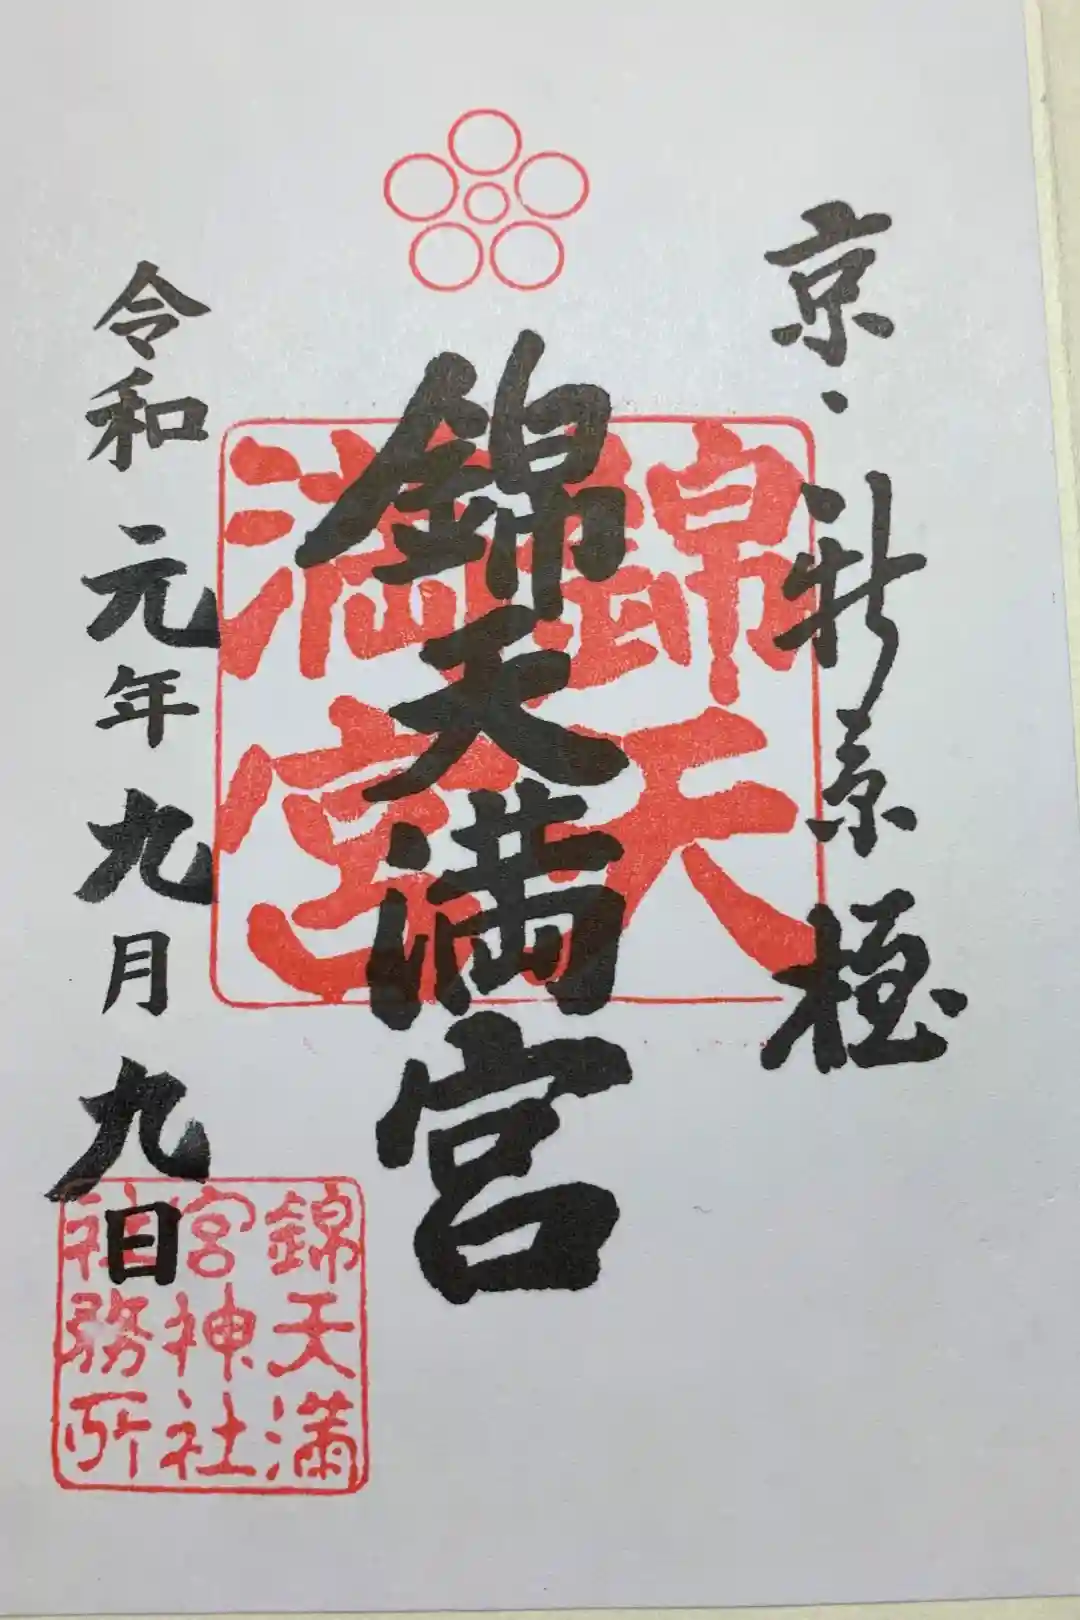 京・新京極
錦天満宮
錦天
満宮
令和元年九月九日
錦天満
宮神社
社務所